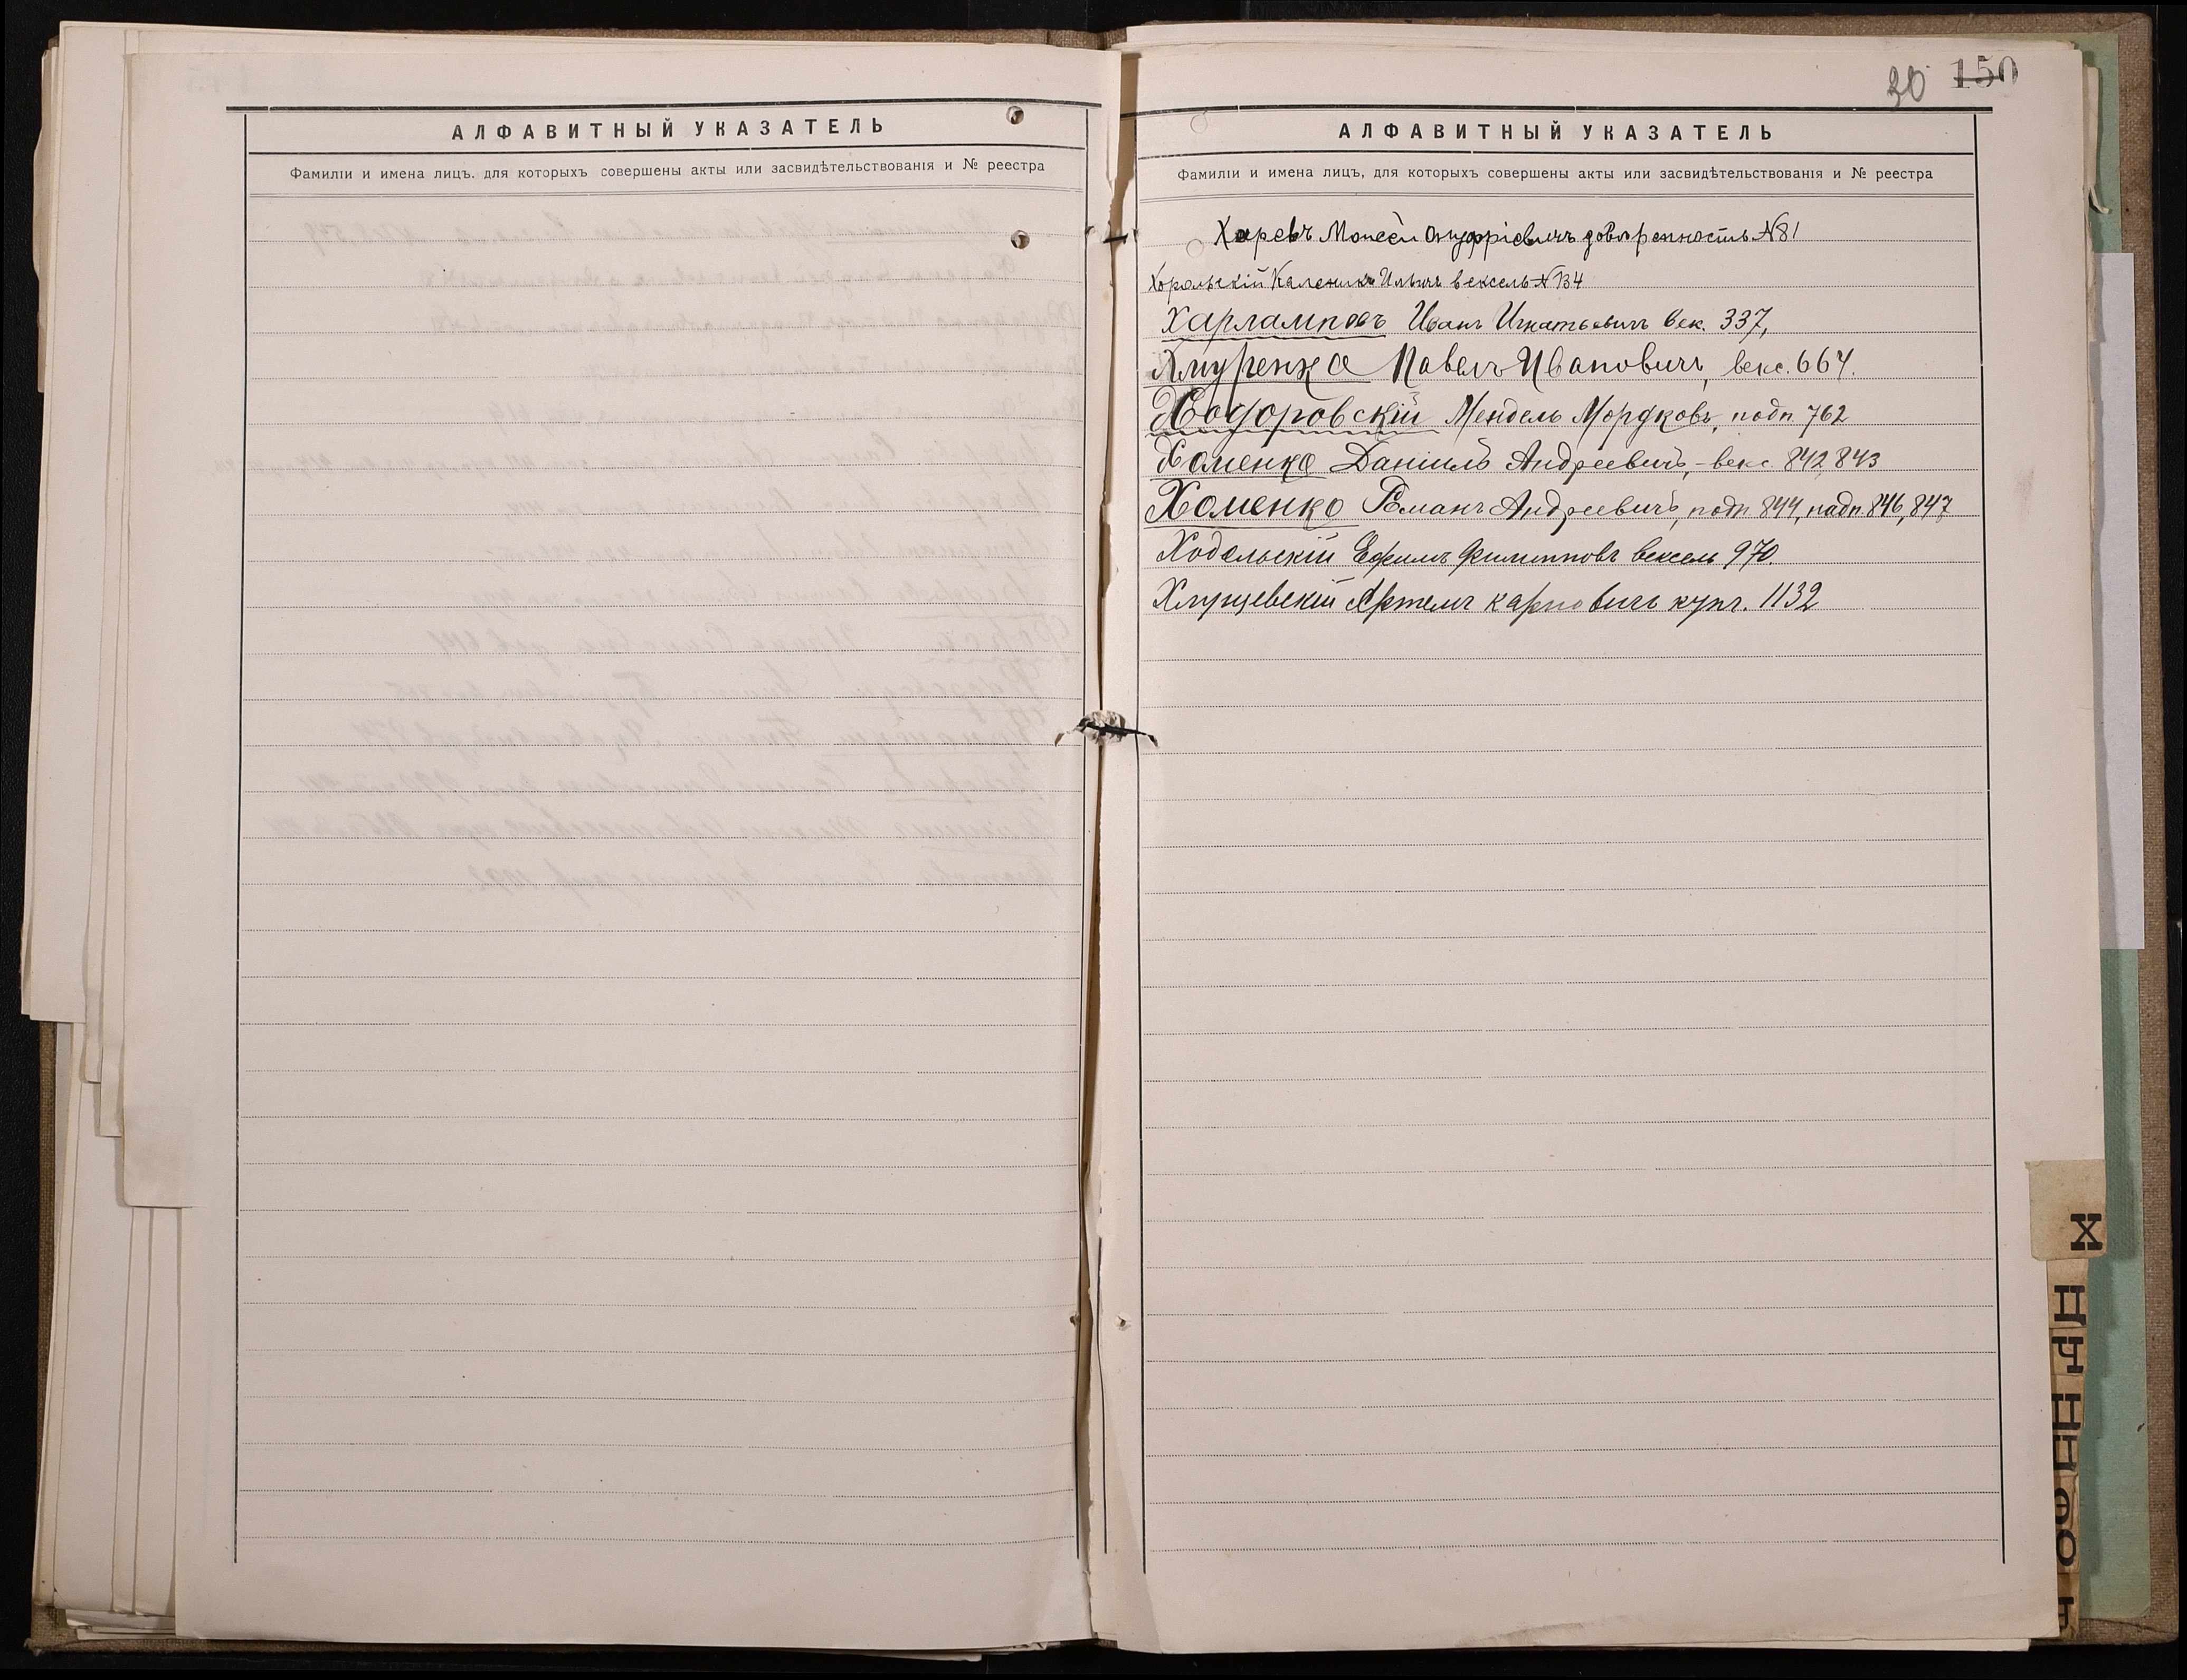 АЛФАВИТНЫЙ УКАЗАТЕЛЬ
Фамиліи и имена лицъ. для которыхъ совершены акты или засвидѣтельствованія и № реестра
30 150
АЛФАВИТНЫЙ УКАЗАТЕЛЬ
Фамиліи и имена лицъ, для которыхъ совершены акты или засвидѣтельствованія и № реестра
Харевъ Моисей Онуфріевичъ довѣренность №81
Хорольскій Каленикъ Ильичъ вексель № 134
Харламповъ Иванъ Игнатьевичъ век. 337,
Хмуренко Павелъ Ивановичъ, векс. 664.
Ходоровскій Мендель Мордковъ, подп 762
Хоменко Даніилъ Андреевичъ, - векс. 842 843
Хоменко Романъ Андреевичъ, подп. 844, надп. 846, 847
Ходольскій Ефимъ Филипповъ вексель 970.
Хлущевскій Артемъ Карповичъ купч. 1132
Х
Ц
Ч
Ш
Щ
Ѳ